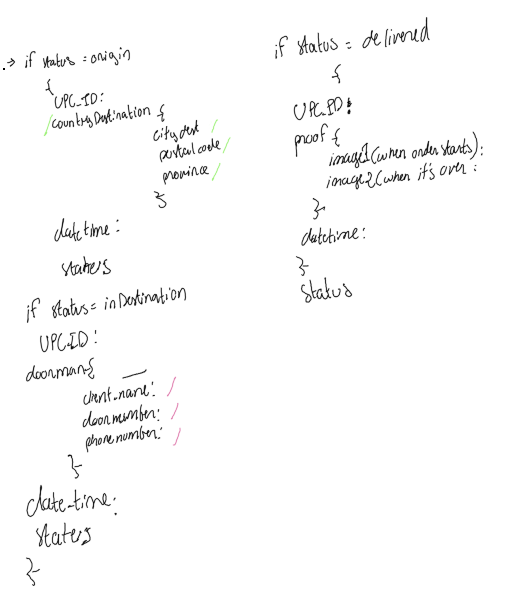 .→ if status = origin
{
UPC_ID:
countryDestination {
city dest
postal code
province
}
datetime:
status
if status = inDestination
UPC_ID:
doorman{
client_name:
doornumber:
phone number:
}
date_time:
status
}
if status = delivered
{
UPC_ID:
proof {
image1 (when order starts):
image2 (when it's over :
}
datetime:
}
status